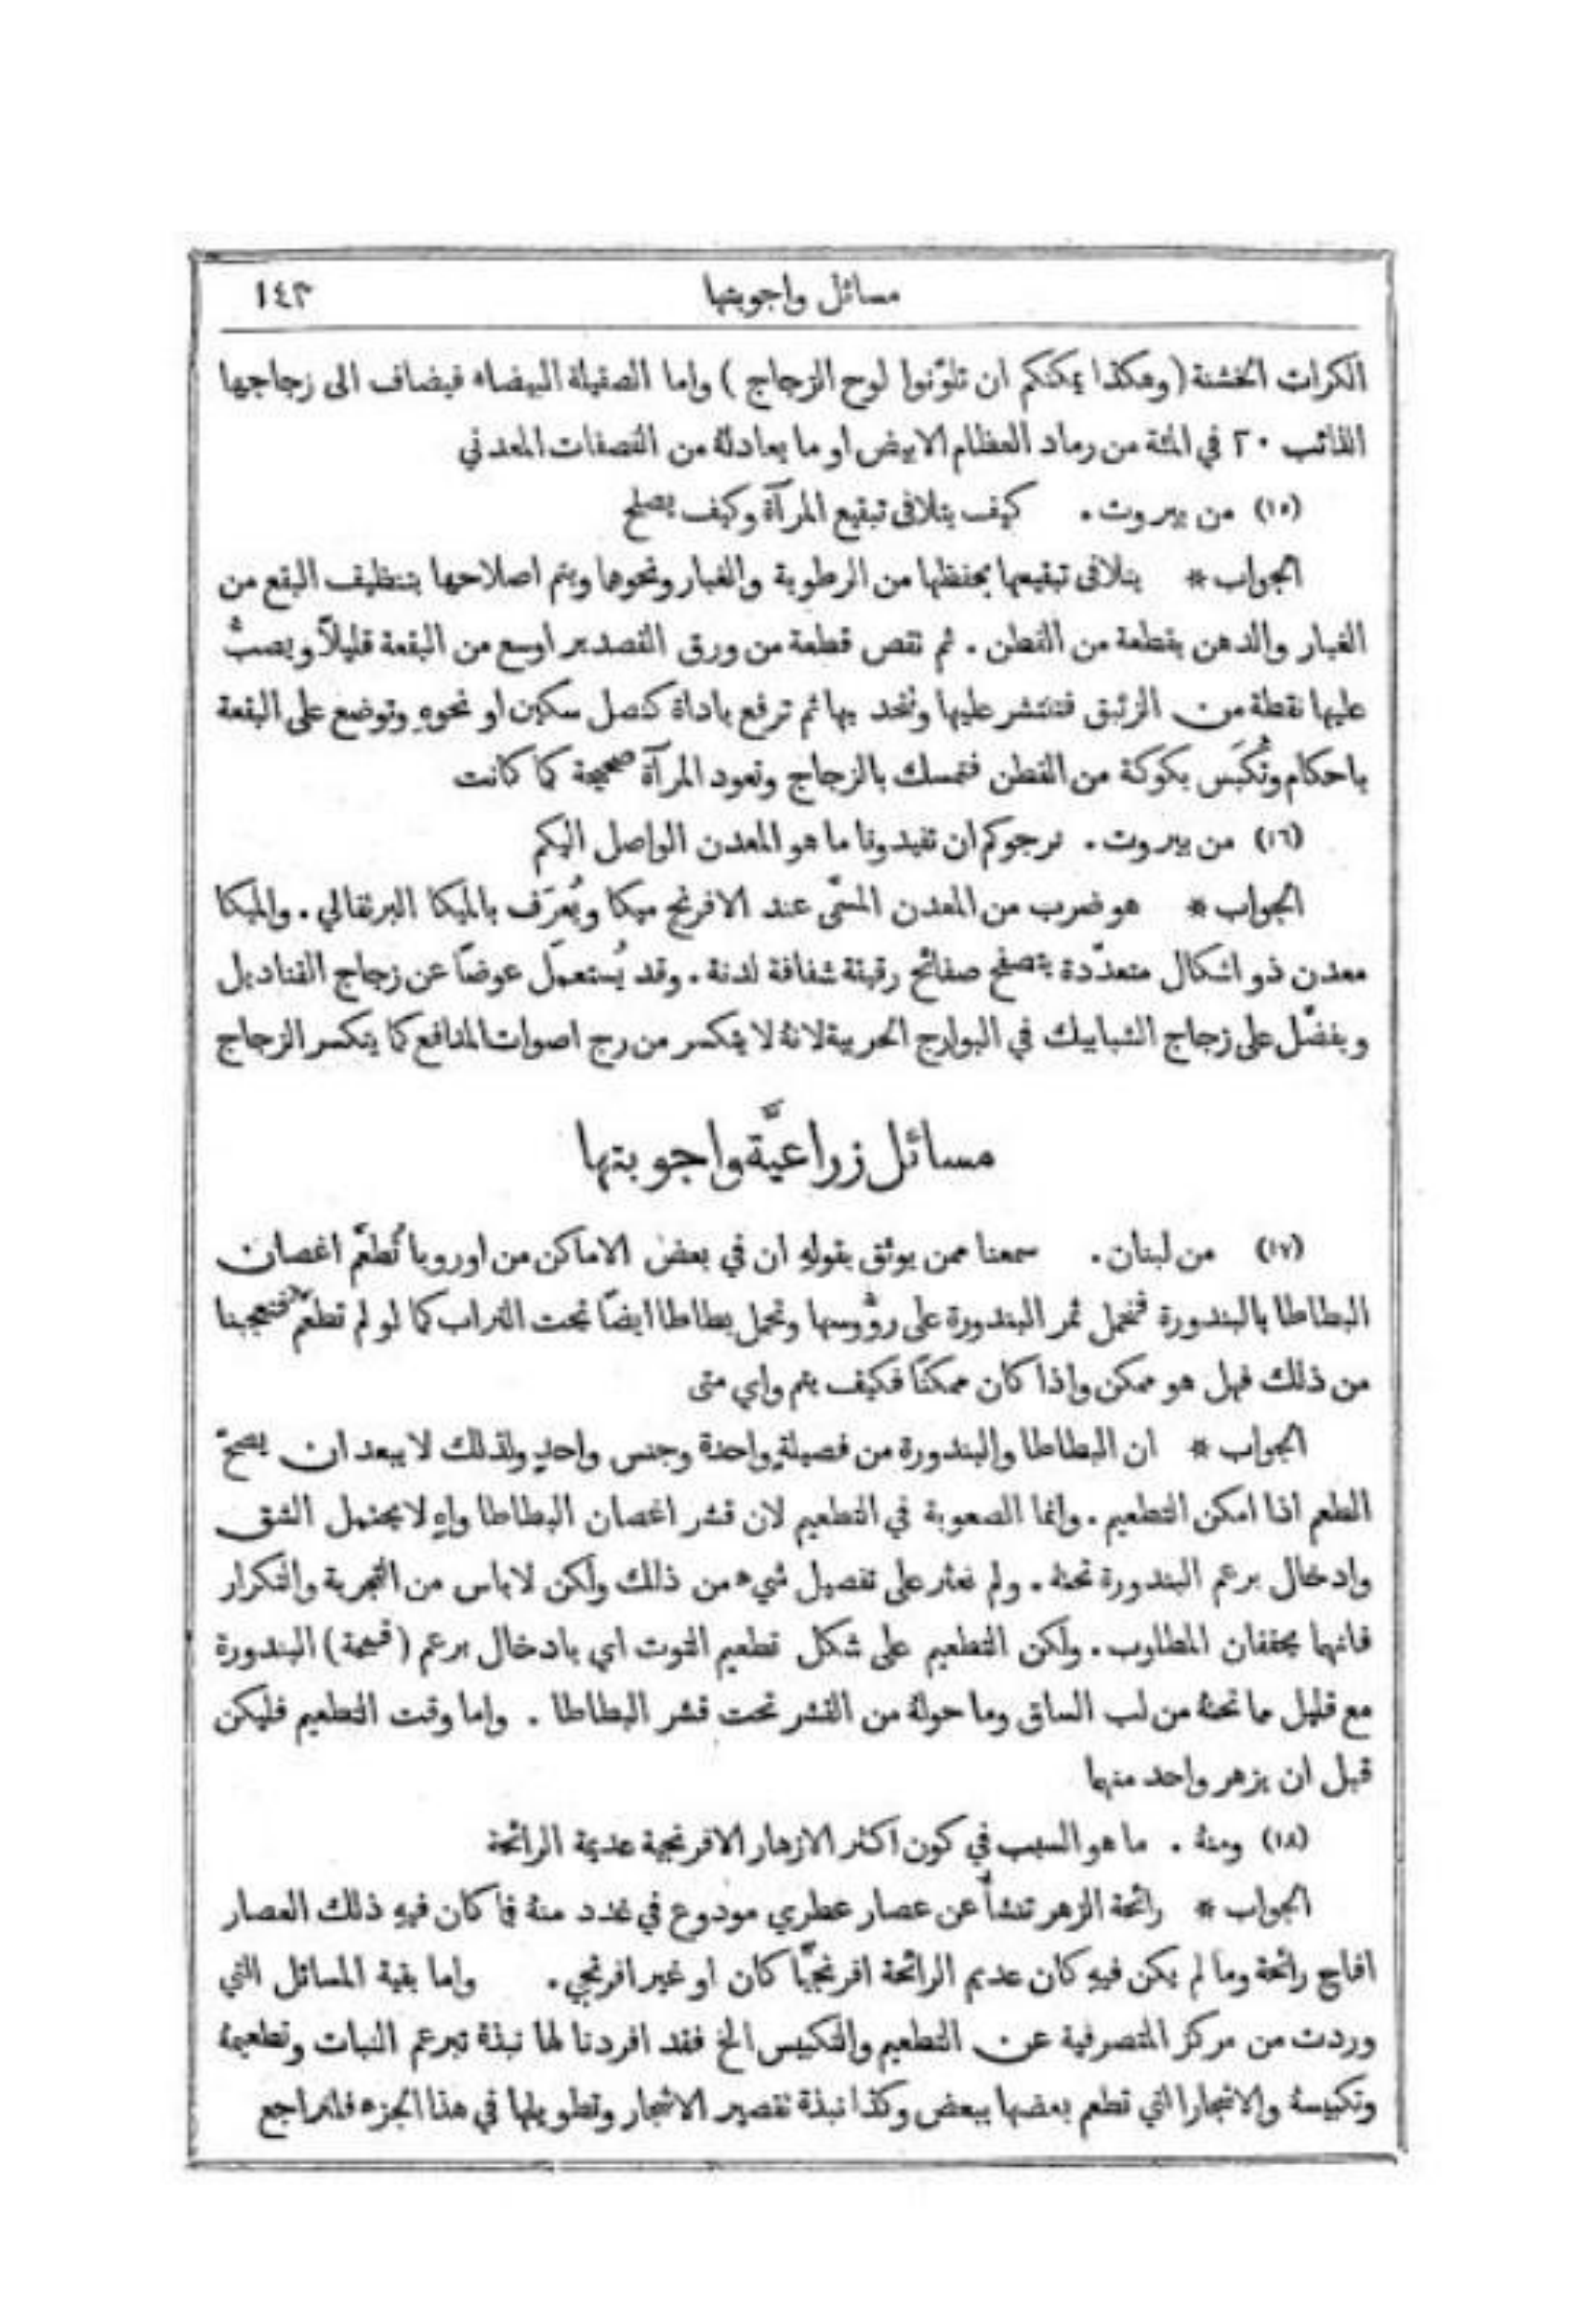 مسائل واجوبتها ١٤٣
الكرات الخشنة (وهكذا يمكنكم ان تلوّنوا لوح الزجاج) واما الصقيلة البيضاء فيضاف الى زجاجها
الذائب ٢٠ في المئة من رماد العظام الابيض او ما يعادلهُ من الفصفات المعدني
(١٥) من بيروت . كيف يتلافى تبقيع المرآة وكيف يصلح
الجواب * يتلافى تبقيعها بحفظها من الرطوبة والغبار ونحوها ويتم اصلاحها بتنظيف البقع من
الغبار والدهن بقطعة من القطن . ثم تقص قطعة من ورق القصدير اوسع من البقعة قليلاً ويصبُّ
عليها نقطة من الزئبق فتنتشر عليها وتتحد بها ثم ترفع باداة كنصل سكين او نحوهِ وتوضع على البقعة
باحكام وتُكبَس بكوكة من القطن فتمسك بالزجاج وتعود المرآة صحيحة كما كانت
(١٦) من بيروت . نرجوكم ان تفيدونا ما هو المعدن الواصل اليكم
الجواب * هو ضرب من المعدن المسمّى عند الافرنج ميكا ويُعرَف بالميكا البرتقالي . والميكا
معدن ذو اشكال متعدّدة يتصفح صفائح رقيقة شفافة لدنة . وقد يُستعمَل عوضاً عن زجاج القناديل
ويفضَّل على زجاج الشبابيك في البوارج الحربية لانهُ لا يتكسر من رج اصوات المدافع كما يتكسر الزجاج
مسائل زراعيَّة واجوبتها
(١٧) من لبنان . سمعنا ممن يوثق بقولهِ ان في بعض الاماكن من اوروبا تُطعَّم اغصان
البطاطا بالبندورة فتحمل ثمر البندورة على رؤُوسها وتحمل بطاطا ايضًا تحت التراب كما لو لم تطعَّم فتعجبنا
من ذلك فهل هو ممكن واذا كان ممكنًا فكيف يتم واي متى
الجواب * ان البطاطا والبندورة من فصيلةٍ واحدة وجنس واحدٍ ولذلك لا يبعد ان يصحّ
الطعم اذا امكن التطعيم . وانما الصعوبة في التطعيم لان قشر اغصان البطاطا واهٍ لا يحتمل الشق
وادخال برعم البندورة تحتهُ . ولم نعثر على تفصيل شيء من ذلك ولكن لا باس من التجربة والتكرار
فانهما يحققان المطلوب . ولكن التطعيم على شكل تطعيم التوت اي بادخال برعم (قسيمة) البندورة
مع قليل مما تحتهُ من لب الساق وما حولهُ من القشر تحت قشر البطاطا . واما وقت التطعيم فليكن
قبل ان يزهر واحد منهما
(١٨) ومنهُ . ما هو السبب في كون اكثر الازهار الافرنجية عديمة الرائحة
الجواب * رائحة الزهر تنشأ عن عصار عطري مودوع في غدد منهُ فما كان فيهِ ذلك العصار
افاح رائحة وما لم يكن فيهِ كان عديم الرائحة افرنجيًّا كان او غير افرنجي . واما بقية المسائل التي
وردت من مركز المتصرفية عن التطعيم والتكبيس الخ فقد افردنا لها نبذة تبرعم النبات وتطعيمهُ
وتكبيسهُ والاشجار التي تطعم بعضها ببعض وكذا نبذة تقصير الاشجار وتطويلها في هذا الجزء فلتراجع